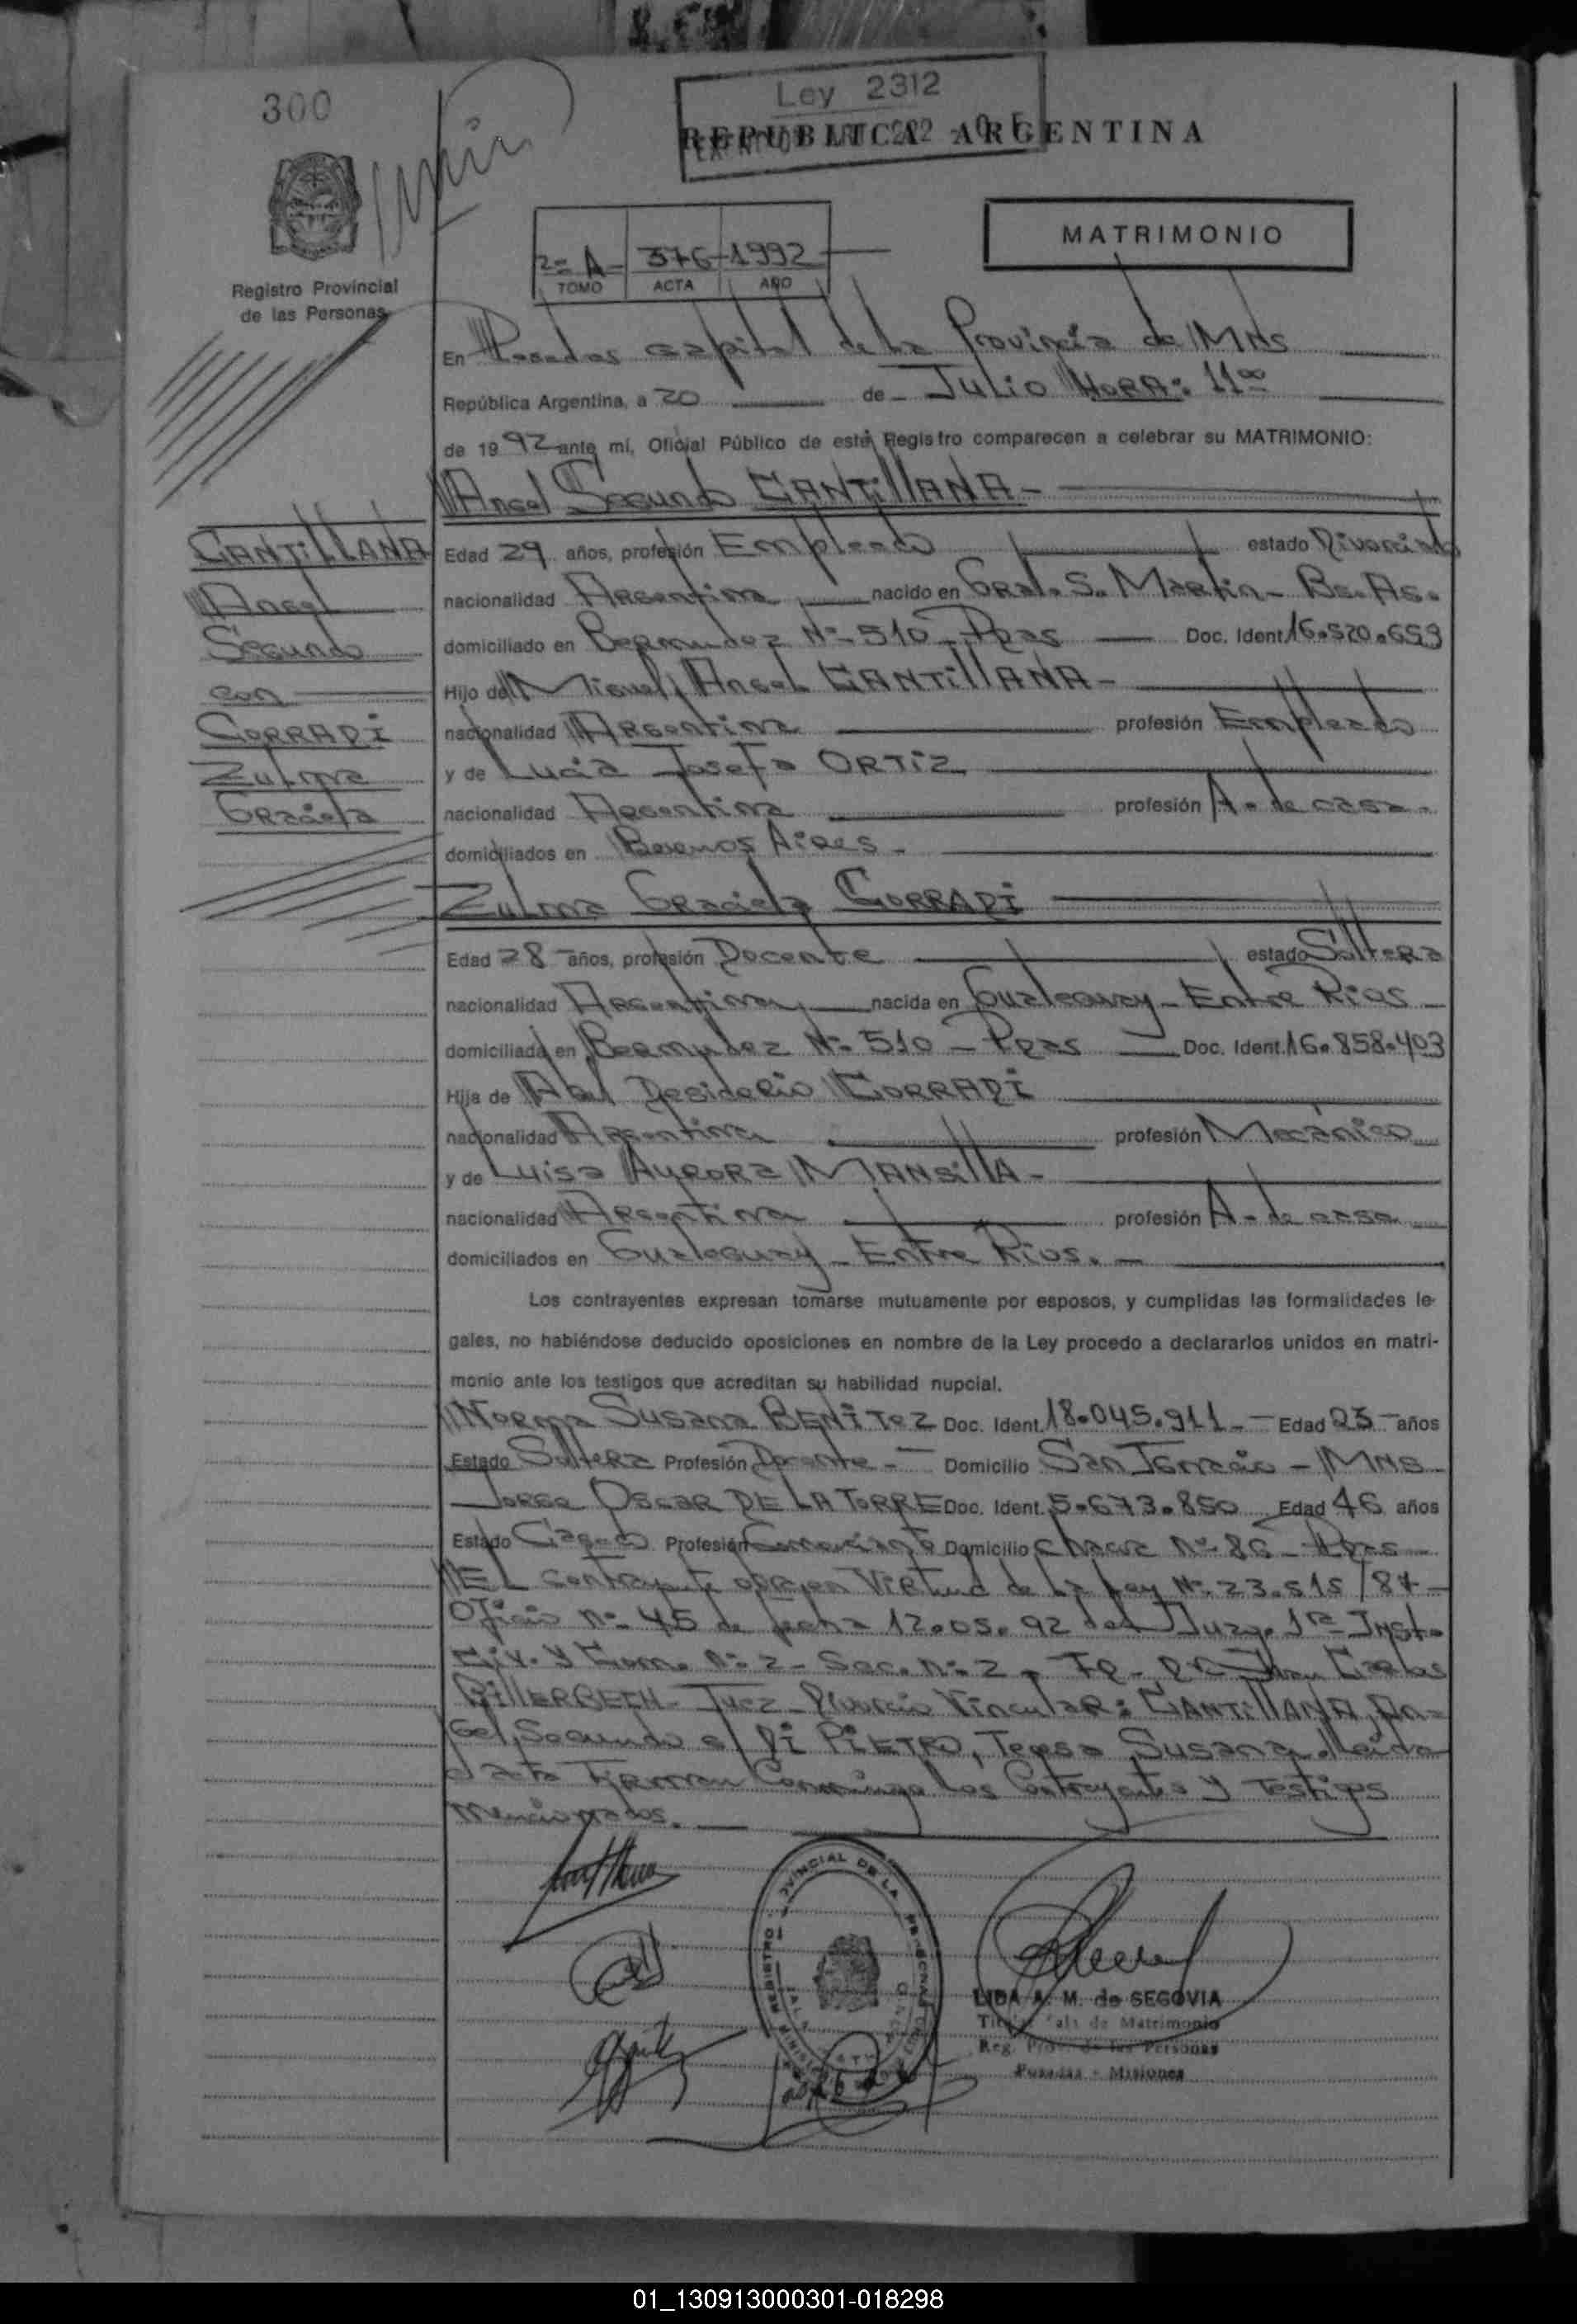 300
Ley 2312
REPUBLICA ARGENTINA
MATRIMONIO
2º A- 376 1992
TOMO ACTA AÑO
Registro Provincial
de las Personas
En Posadas capital de la Provincia de Mns
República Argentina, a 20 de Julio HORA: 11oo
de 1992 ante mi, Oficial Público de este Registro comparecen a celebrar su MATRIMONIO:
Angel Segundo CANTILLANA-
CANTILLANA
Angel
Segundo
con
CORRADI
Zulma
Graciela
Edad 29 años, profesión Empleado estado Divorciado
nacionalidad Argentina nacido en Gral. S. Martin- Bs. As.
domiciliado en Bermudez Nº 510 Pdas Doc. Ident 16.520.659
Hijo de Miguel Angel CANTILLANA-
nacionalidad Argentina profesión Empleado
y de Lucia Josefa ORTIZ
nacionalidad Argentina profesión A. de casa.
domiciliados en Buenos Aires.
Zulma Graciela CORRADI
Edad 28 años, profesión Docente estado Soltera
nacionalidad Argentina nacida en Gualeguay- Entre Rios
domiciliada en Bermudez Nº 510 - Pdas Doc. Ident. 16.858.403
Hija de Abel Desiderio CORRADI
nacionalidad Argentina profesión Mecánico
y de Luisa Aurora MANSILLA-
nacionalidad Argentina profesión A. de casa
domiciliados en Gualeguay- Entre Rios.
Los contrayentes expresan tomarse mutuamente por esposos, y cumplidas las formalidades le-
gales, no habiéndose deducido oposiciones en nombre de la Ley procedo a declararlos unidos en matri-
monio ante los testigos que acreditan su habilidad nupcial.
Norma Susana BENITEZ Doc. Ident. 18.045.911- Edad 25 años
Estado Soltera Profesión Docente - Domicilio San Ignacio - Mns
Jorge Oscar DE LA TORRE Doc. Ident. 5.673.850 Edad 46 años
Estado Casado Profesión Comerciante Domicilio Chacra Nº 86- Pdas
El contrayente obra en Virtud de la Ley Nº 23.515/87-
Oficio nº 45 de fecha 12.05.92 del Juzg. 1ra Inst.
Civ. y Com. Nº 2- Sec. Nº 2 Juan Carlos
Juez- Divorcio Vincular: CANTILLANA, An-
gel Segundo c/ DI PIETRO, Teresa Susana. Leida
el acta firman Conmigo los Contrayentes y Testigos
mencionados.
LIDA A. M. de SEGOVIA
de Matrimonio
Reg. Prov. de las Personas
Posadas - Misiones
01_130913000301-018298